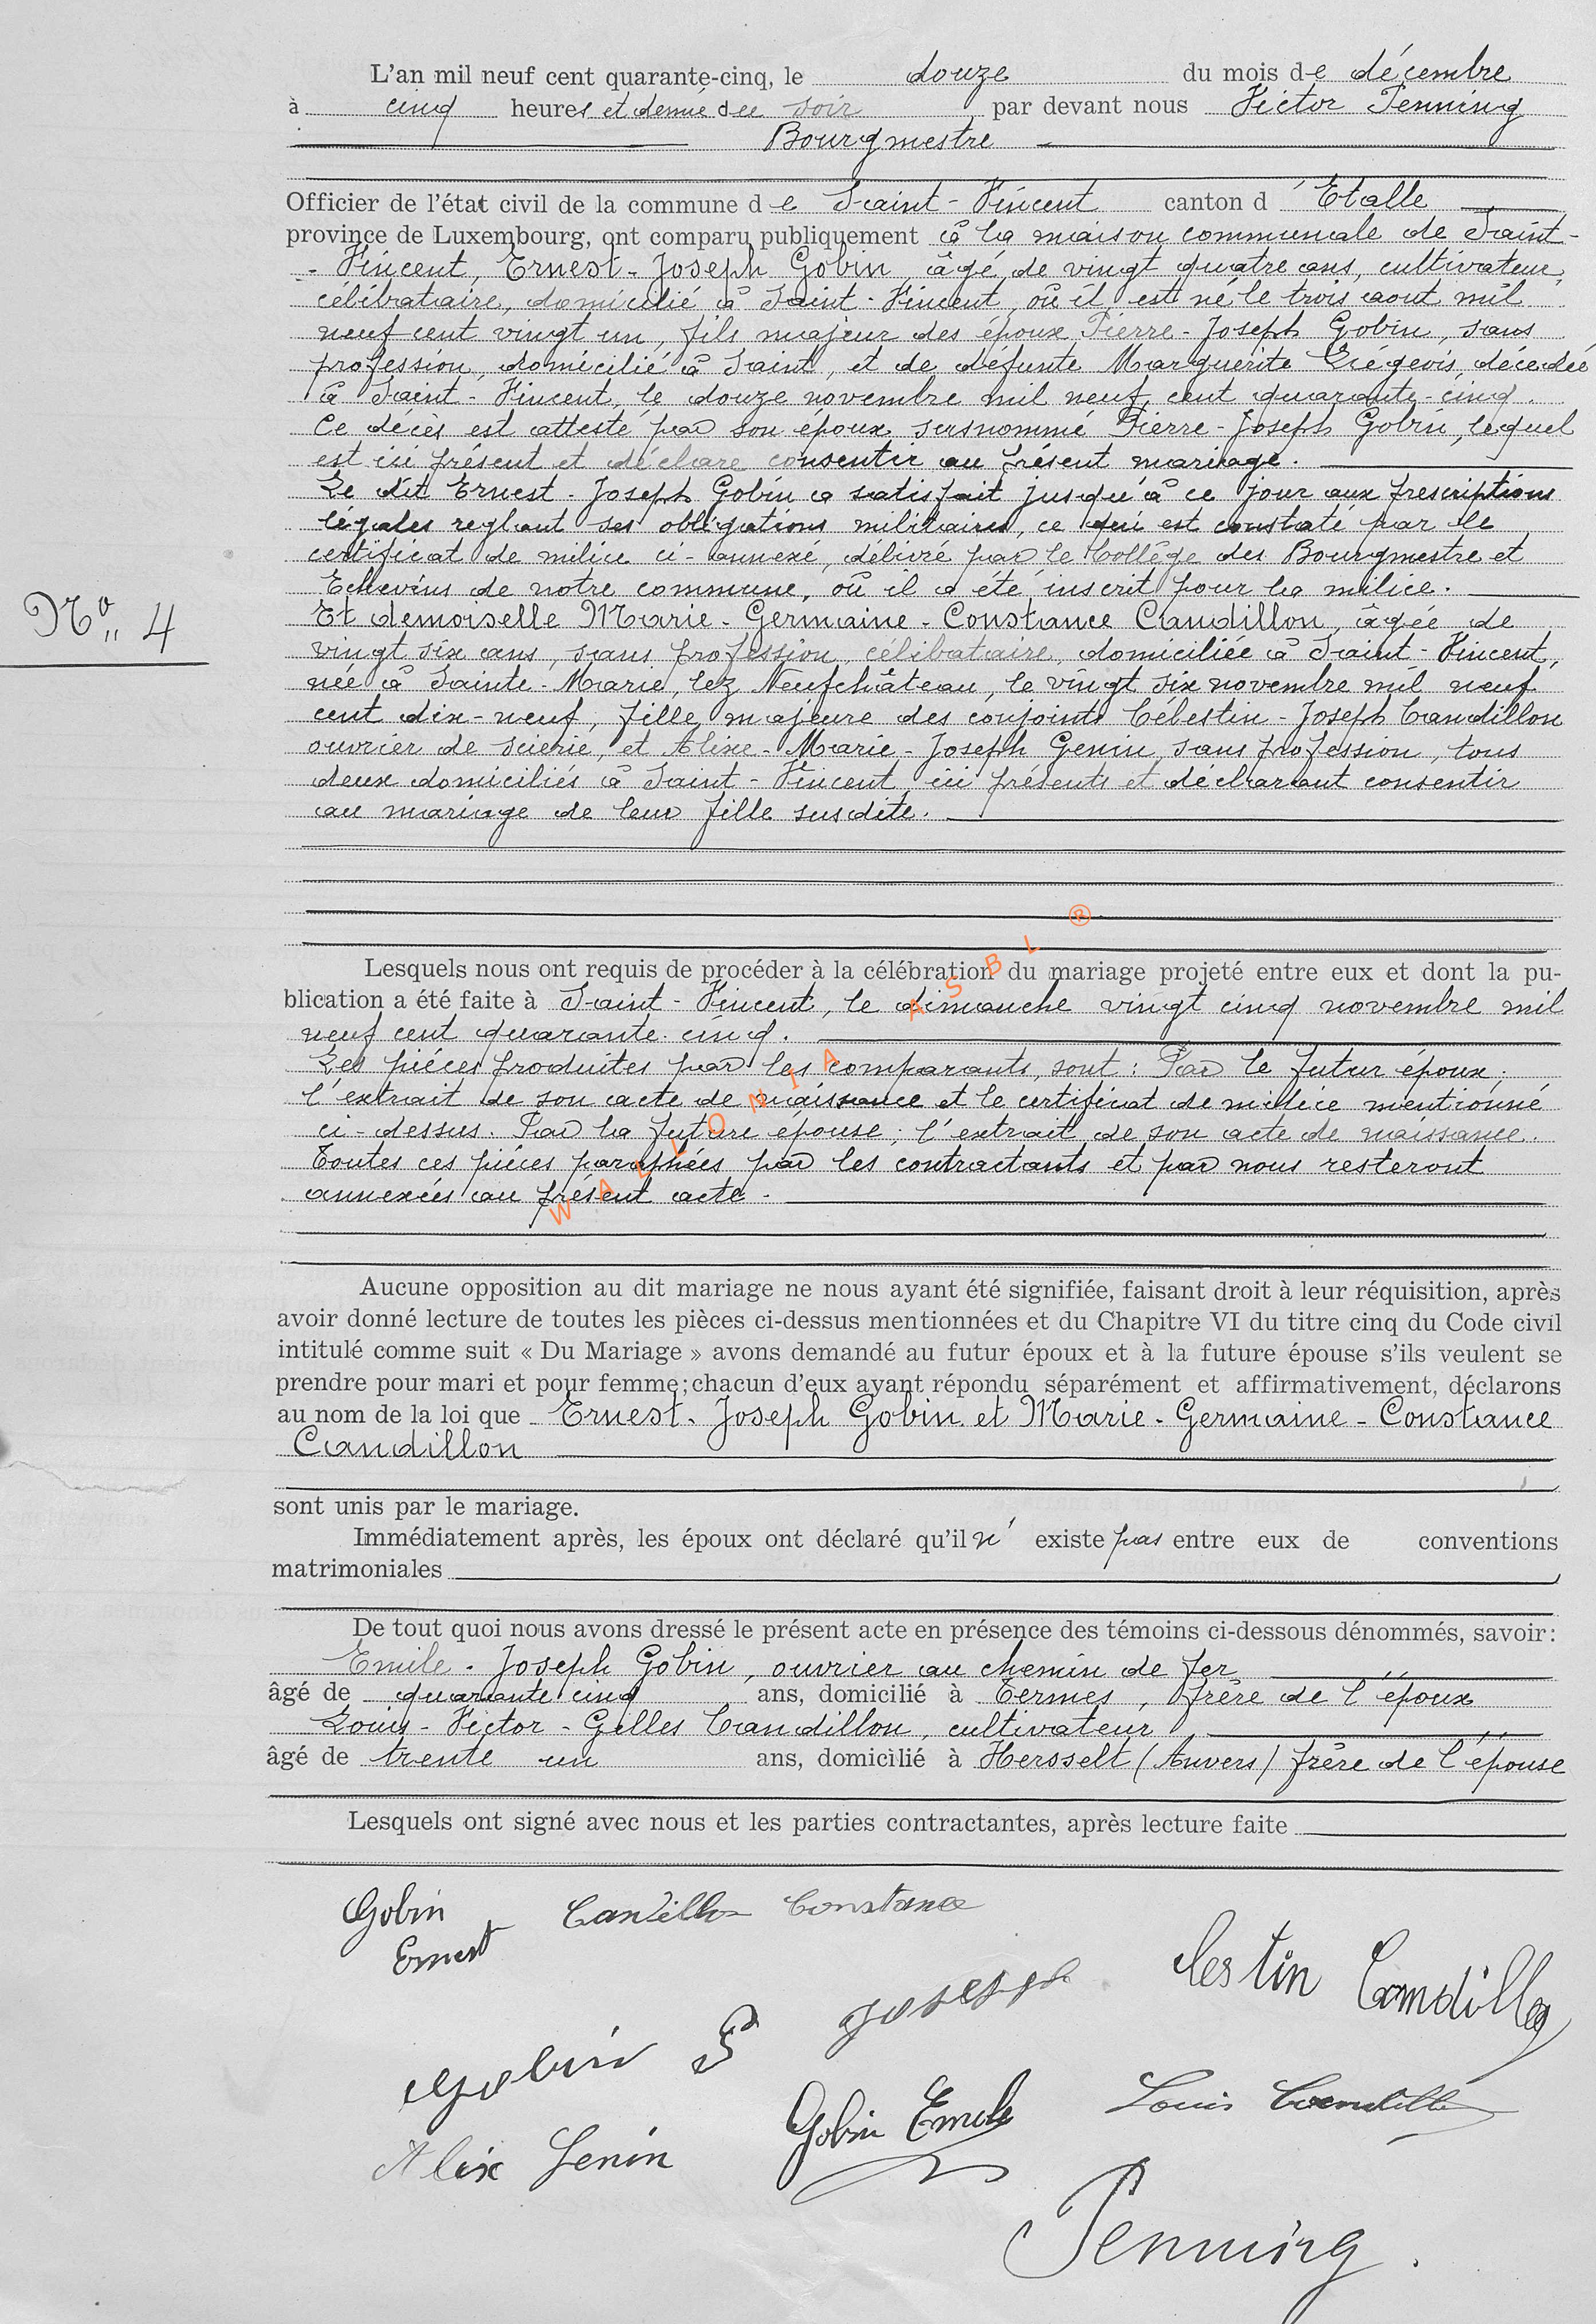 L'an mil neuf cent quarante-cinq, le douze du mois de décembre
à cinq heures et demie du soir par devant nous Victor Penning
Bourgmestre
Officier de l'état civil de la commune de Saint-Vincent canton d'Etalle
province de Luxembourg, ont comparu publiquement à la maison communale de Saint-
- Vincent, Ernest-Joseph Gobin, âgé de vingt quatre ans, cultivateur,
célibataire, domicilié à Saint-Vincent, où il est né le trois aout mil
neuf cent vingt un, fils majeur des époux Pierre-Joseph Gobin, sans
profession, domicilié à Saint, et de défunte Marguerite Liégeois, décédée
à Saint-Vincent, le douze novembre mil neuf cent quarante-cinq.
Ce décès est attesté par son époux susnommé Pierre-Joseph Gobin, lequel
est ici présent et déclare consentir au présent mariage.
Le dit Ernest-Joseph Gobin a satisfait jusqu'à ce jour aux prescriptions
légales reglant ses obligations militaires, ce qui est constaté par le
certificat de milice ci-annexé, délivré par le Collège des Bourgmestre et
Echevins de notre commune, où il a été inscrit pour la milice.
No 4
Et demoiselle Marie-Germaine-Constance Candillon, âgée de
vingt six ans, sans profession, célibataire, domiciliée à Saint-Vincent,
née à Sainte-Marie, lez Neufchâteau, le vingt six novembre mil neuf
cent dix-neuf, fille majeure des conjoints Célestin-Joseph Candillon
ouvrier de scierie, et Alixe-Marie-Joseph Genin, sans profession, tous
deux domiciliés à Saint-Vincent, ici présents et déclarant consentir
au mariage de leur fille susdite.
Lesquels nous ont requis de procéder à la célébration du mariage projeté entre eux et dont la pu-
blication a été faite à Saint-Vincent, le dimanche vingt cinq novembre mil
neuf cent quarante-cinq.
Les pièces produites par les comparants, sont: Par le futur époux;
l'extrait de son acte de naissance et le certificat de milice mentionné
ci-dessus. Par la future épouse; l'extrait de son acte de naissance.
Toutes ces pièces paraphées par les contractants et par nous resteront
annexées au présent acte.
WALLONIA ASBL ®
Aucune opposition au dit mariage ne nous ayant été signifiée, faisant droit à leur réquisition, après
avoir donné lecture de toutes les pièces ci-dessus mentionnées et du Chapitre VI du titre cinq du Code civil
intitulé comme suit « Du Mariage » avons demandé au futur époux et à la future épouse s'ils veulent se
prendre pour mari et pour femme; chacun d'eux ayant répondu séparément et affirmativement, déclarons
au nom de la loi que Ernest-Joseph Gobin et Marie-Germaine-Constance
Candillon
sont unis par le mariage.
Immédiatement après, les époux ont déclaré qu'il n'existe pas entre eux de conventions
matrimoniales
De tout quoi nous avons dressé le présent acte en présence des témoins ci-dessous dénommés, savoir:
Emile-Joseph Gobin, ouvrier au chemin de fer
âgé de quarante cinq ans, domicilié à Termes, frère de l'époux
Louis-Victor-Gilles Candillon, cultivateur
âgé de trente un ans, domicilié à Hersselt (Anvers) frère de l'épouse
Lesquels ont signé avec nous et les parties contractantes, après lecture faite
Gobin Candillon Constance
Ernest
Gobin P Joseph Celestin Candillon
Alix Genin Gobin Emile Louis Candillon
Penning.